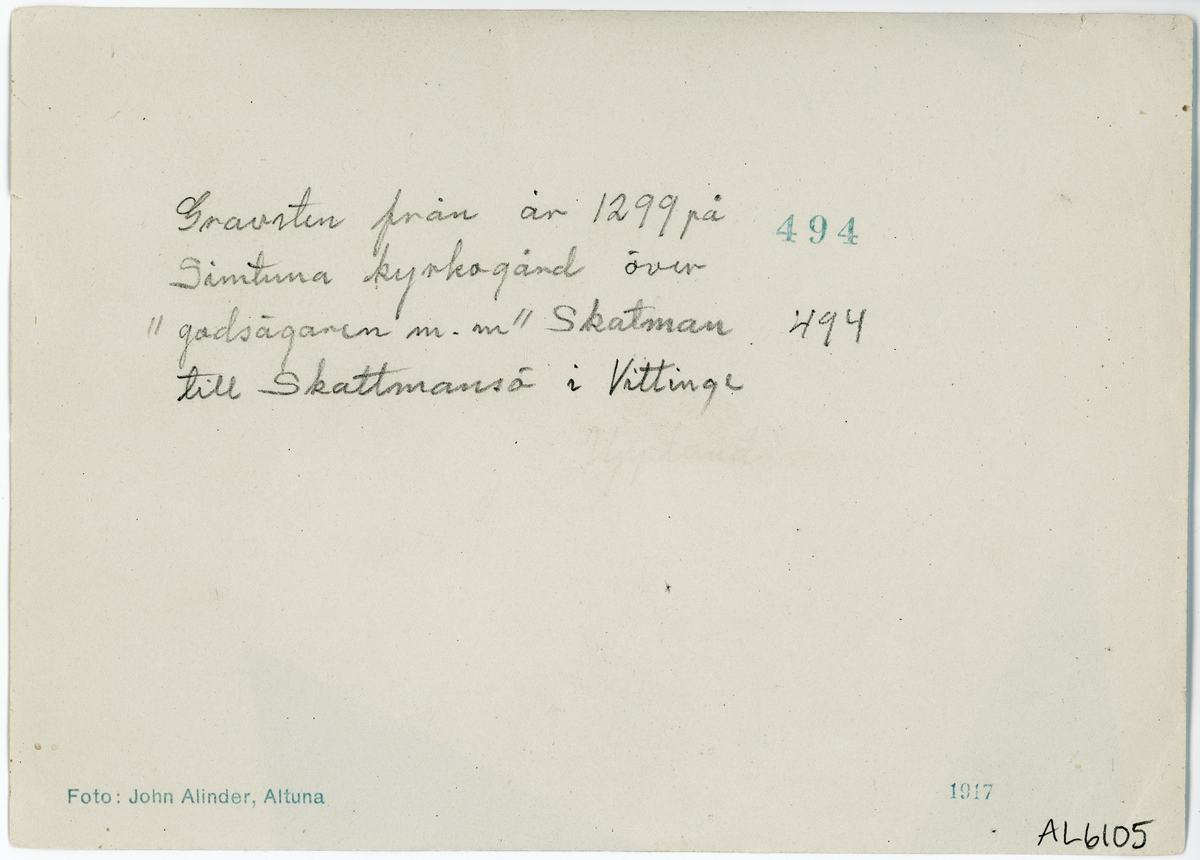 Gravsten från år 1299 på 494
Simtuna kyrkogård över
"godsägaren m.m" Skatman 494
till Skattmansö i Vittinge
Foto: John Alinder, Altuna 1917
AL6105